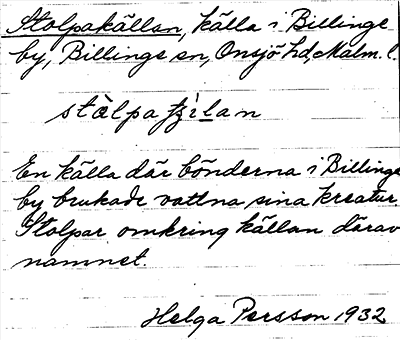 Stolpakällan, källa i Billinge
by, Billinge sn, Onsjö hd, Malm. l.
stòlpatʃìlan
En källa där bönderna i Billinge
by brukade vattna sina kreatur.
Stolpar omkring källan därav
namnet.
Helga Persson 1932